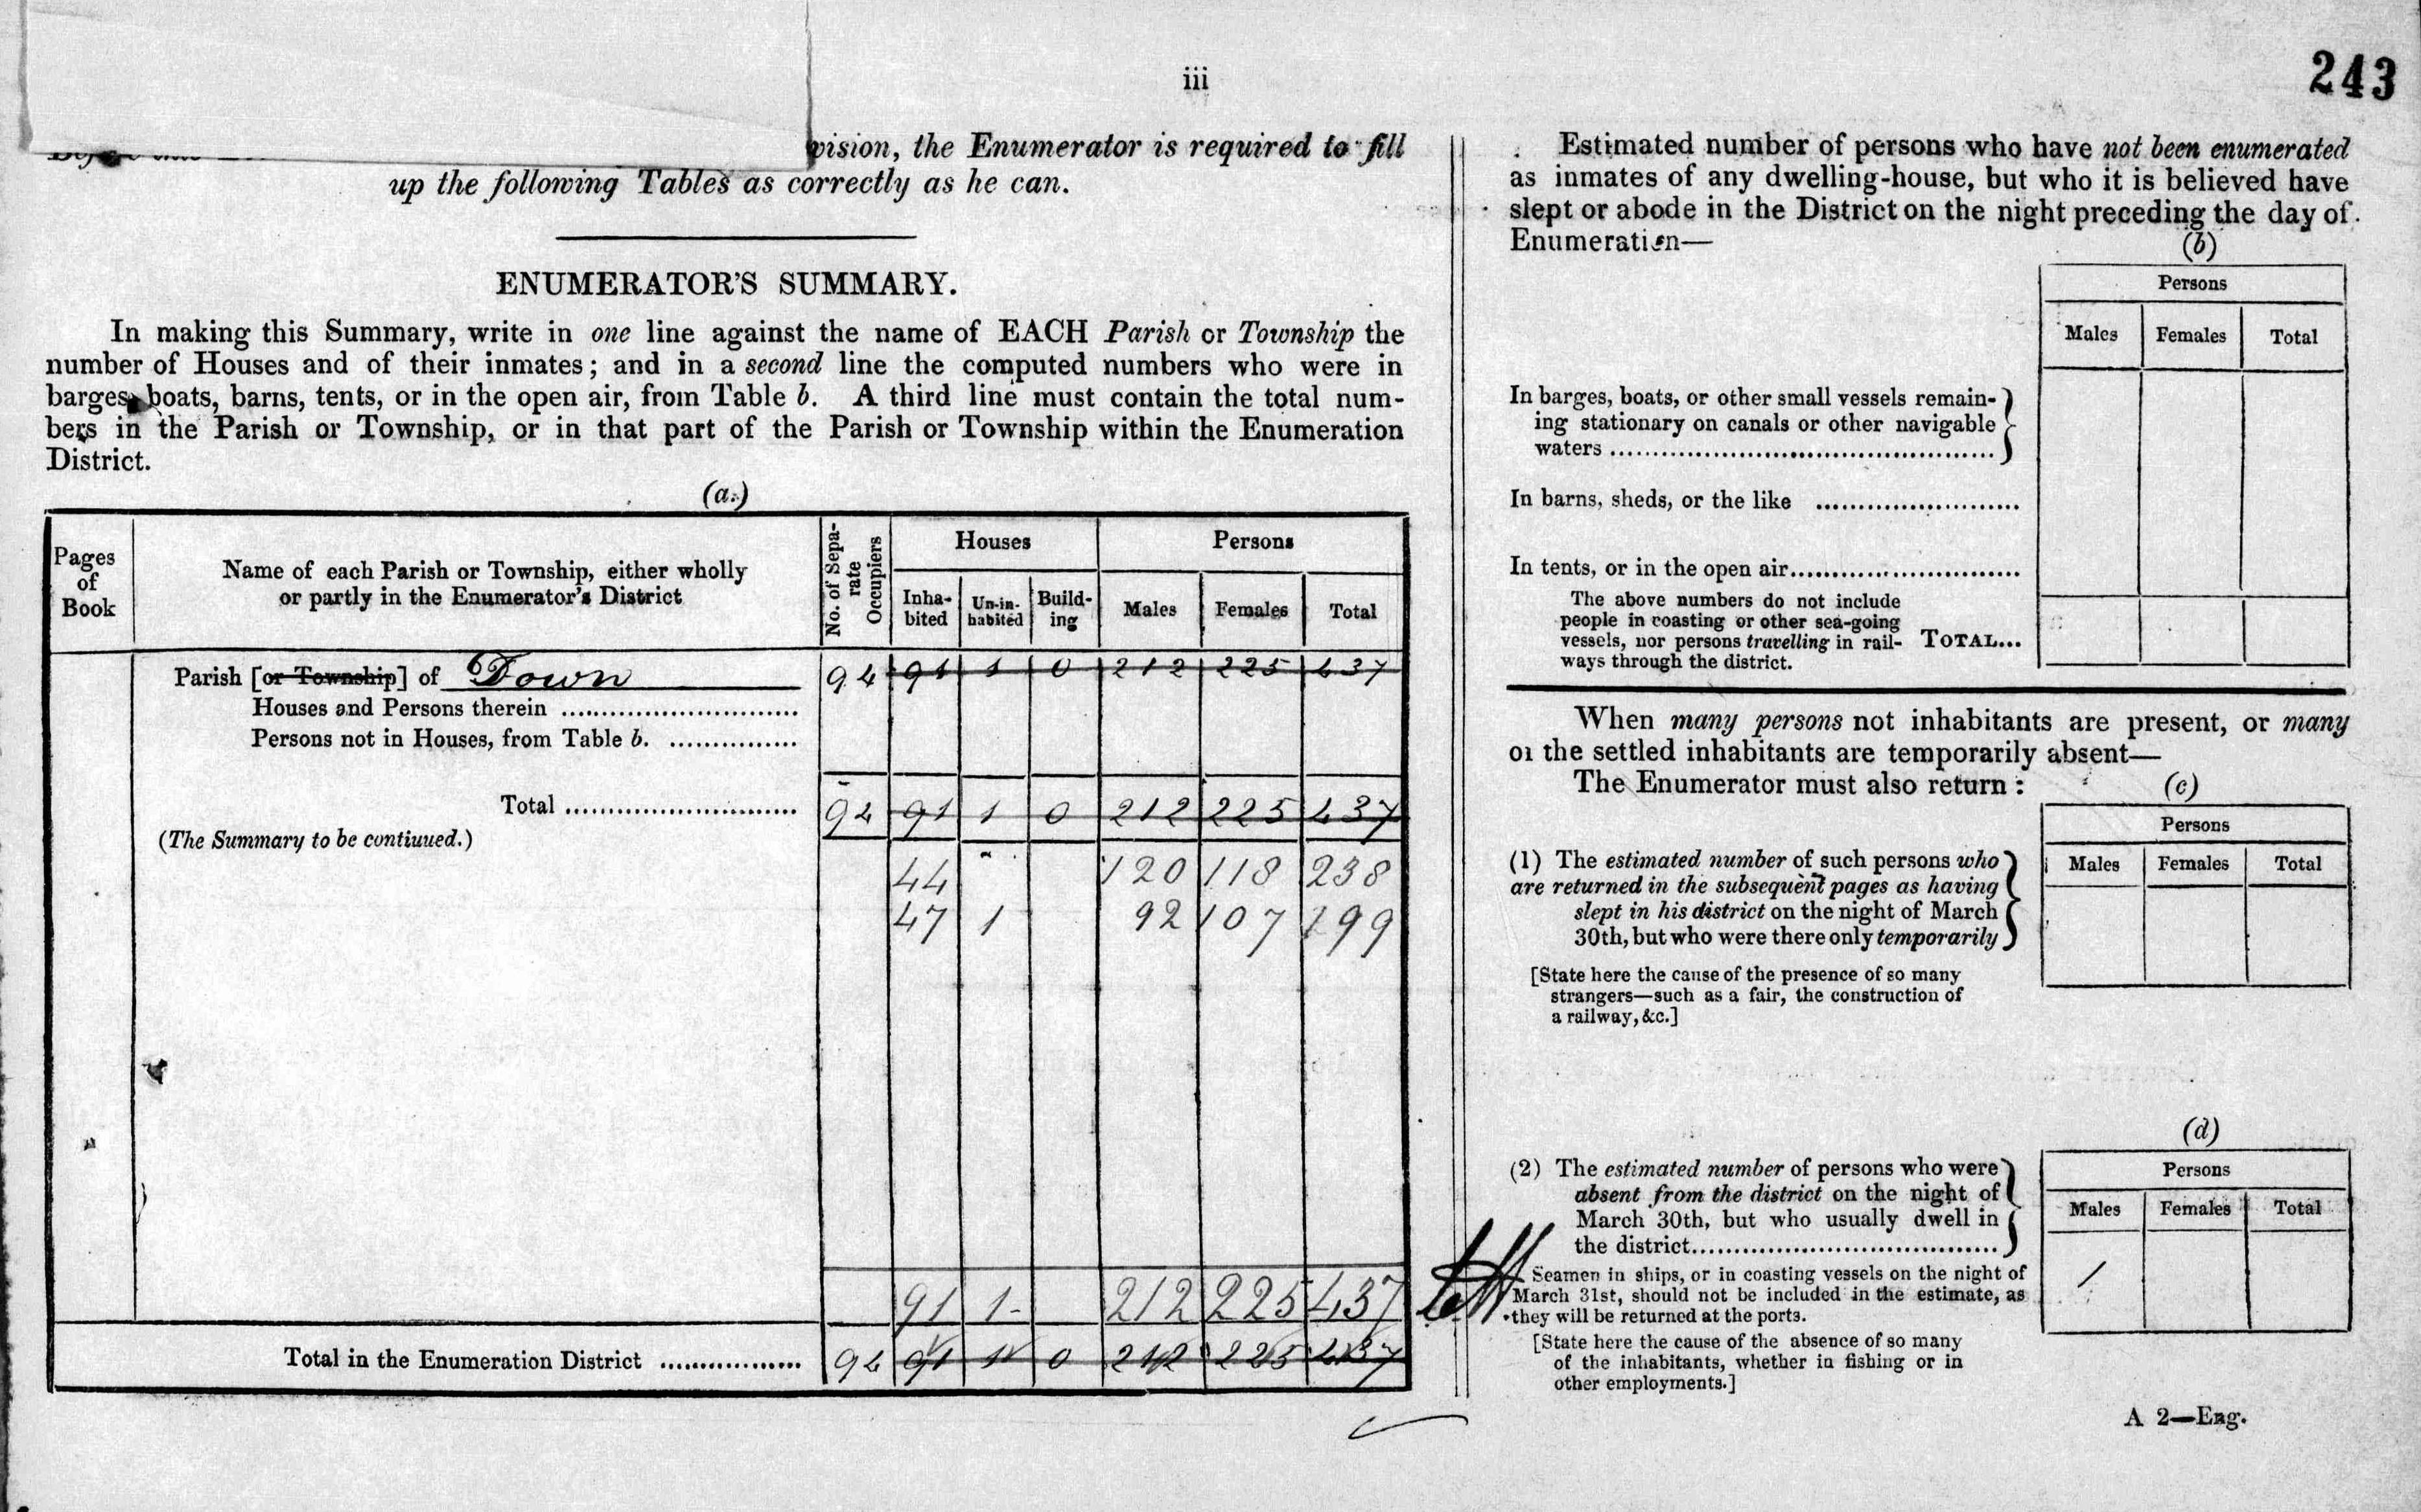 iii
243
vision, the Enumerator is required to fill
up the following Tables as correctly as he can.
ENUMERATOR'S SUMMARY.
In making this Summary, write in one line against the name of EACH Parish or Township the
number of Houses and of their inmates; and in a second line the computed numbers who were in
barges, boats, barns, tents, or in the open air, from Table b. A third line must contain the total num-
bers in the Parish or Township, or in that part of the Parish or Township within the Enumeration
District.
(a.)
Pages of Book
Name of each Parish or Township, either wholly
or partly in the Enumerator's District
No. of Sepa-
rate
Occupiers
Houses
Persons
Inha-
bited
Un-in-
habited
Build-
ing
Males
Females
Total
Parish [or Township] of Down 94 91 1 0 212 225 437
Houses and Persons therein ............................
Persons not in Houses, from Table b. ...............
Total ........................... 94 91 1 0 212 225 437
(The Summary to be continued.)
44 120 118 238
47 1 92 107 199
91 1- 212 225 437
Total in the Enumeration District ................. 94 91 1 0 212 225 437
Estimated number of persons who have not been enumerated
as inmates of any dwelling-house, but who it is believed have
slept or abode in the District on the night preceding the day of
Enumeration—
(b)
Persons
Males Females Total
In barges, boats, or other small vessels remain-
ing stationary on canals or other navigable
waters .............................................
In barns, sheds, or the like ........................
In tents, or in the open air...........................
The above numbers do not include
people in coasting or other sea-going
vessels, nor persons travelling in rail-
ways through the district.
TOTAL...
When many persons not inhabitants are present, or many
of the settled inhabitants are temporarily absent—
The Enumerator must also return :
(c)
Persons
Males Females Total
(1) The estimated number of such persons who
are returned in the subsequent pages as having
slept in his district on the night of March
30th, but who were there only temporarily
[State here the cause of the presence of so many
strangers—such as a fair, the construction of
a railway, &c.]
(d)
Persons
Males Females Total
(2) The estimated number of persons who were
absent from the district on the night of
March 30th, but who usually dwell in
the district....................................
1
Seamen in ships, or in coasting vessels on the night of
March 31st, should not be included in the estimate, as
they will be returned at the ports.
[State here the cause of the absence of so many
of the inhabitants, whether in fishing or in
other employments.]
A 2—Eng.